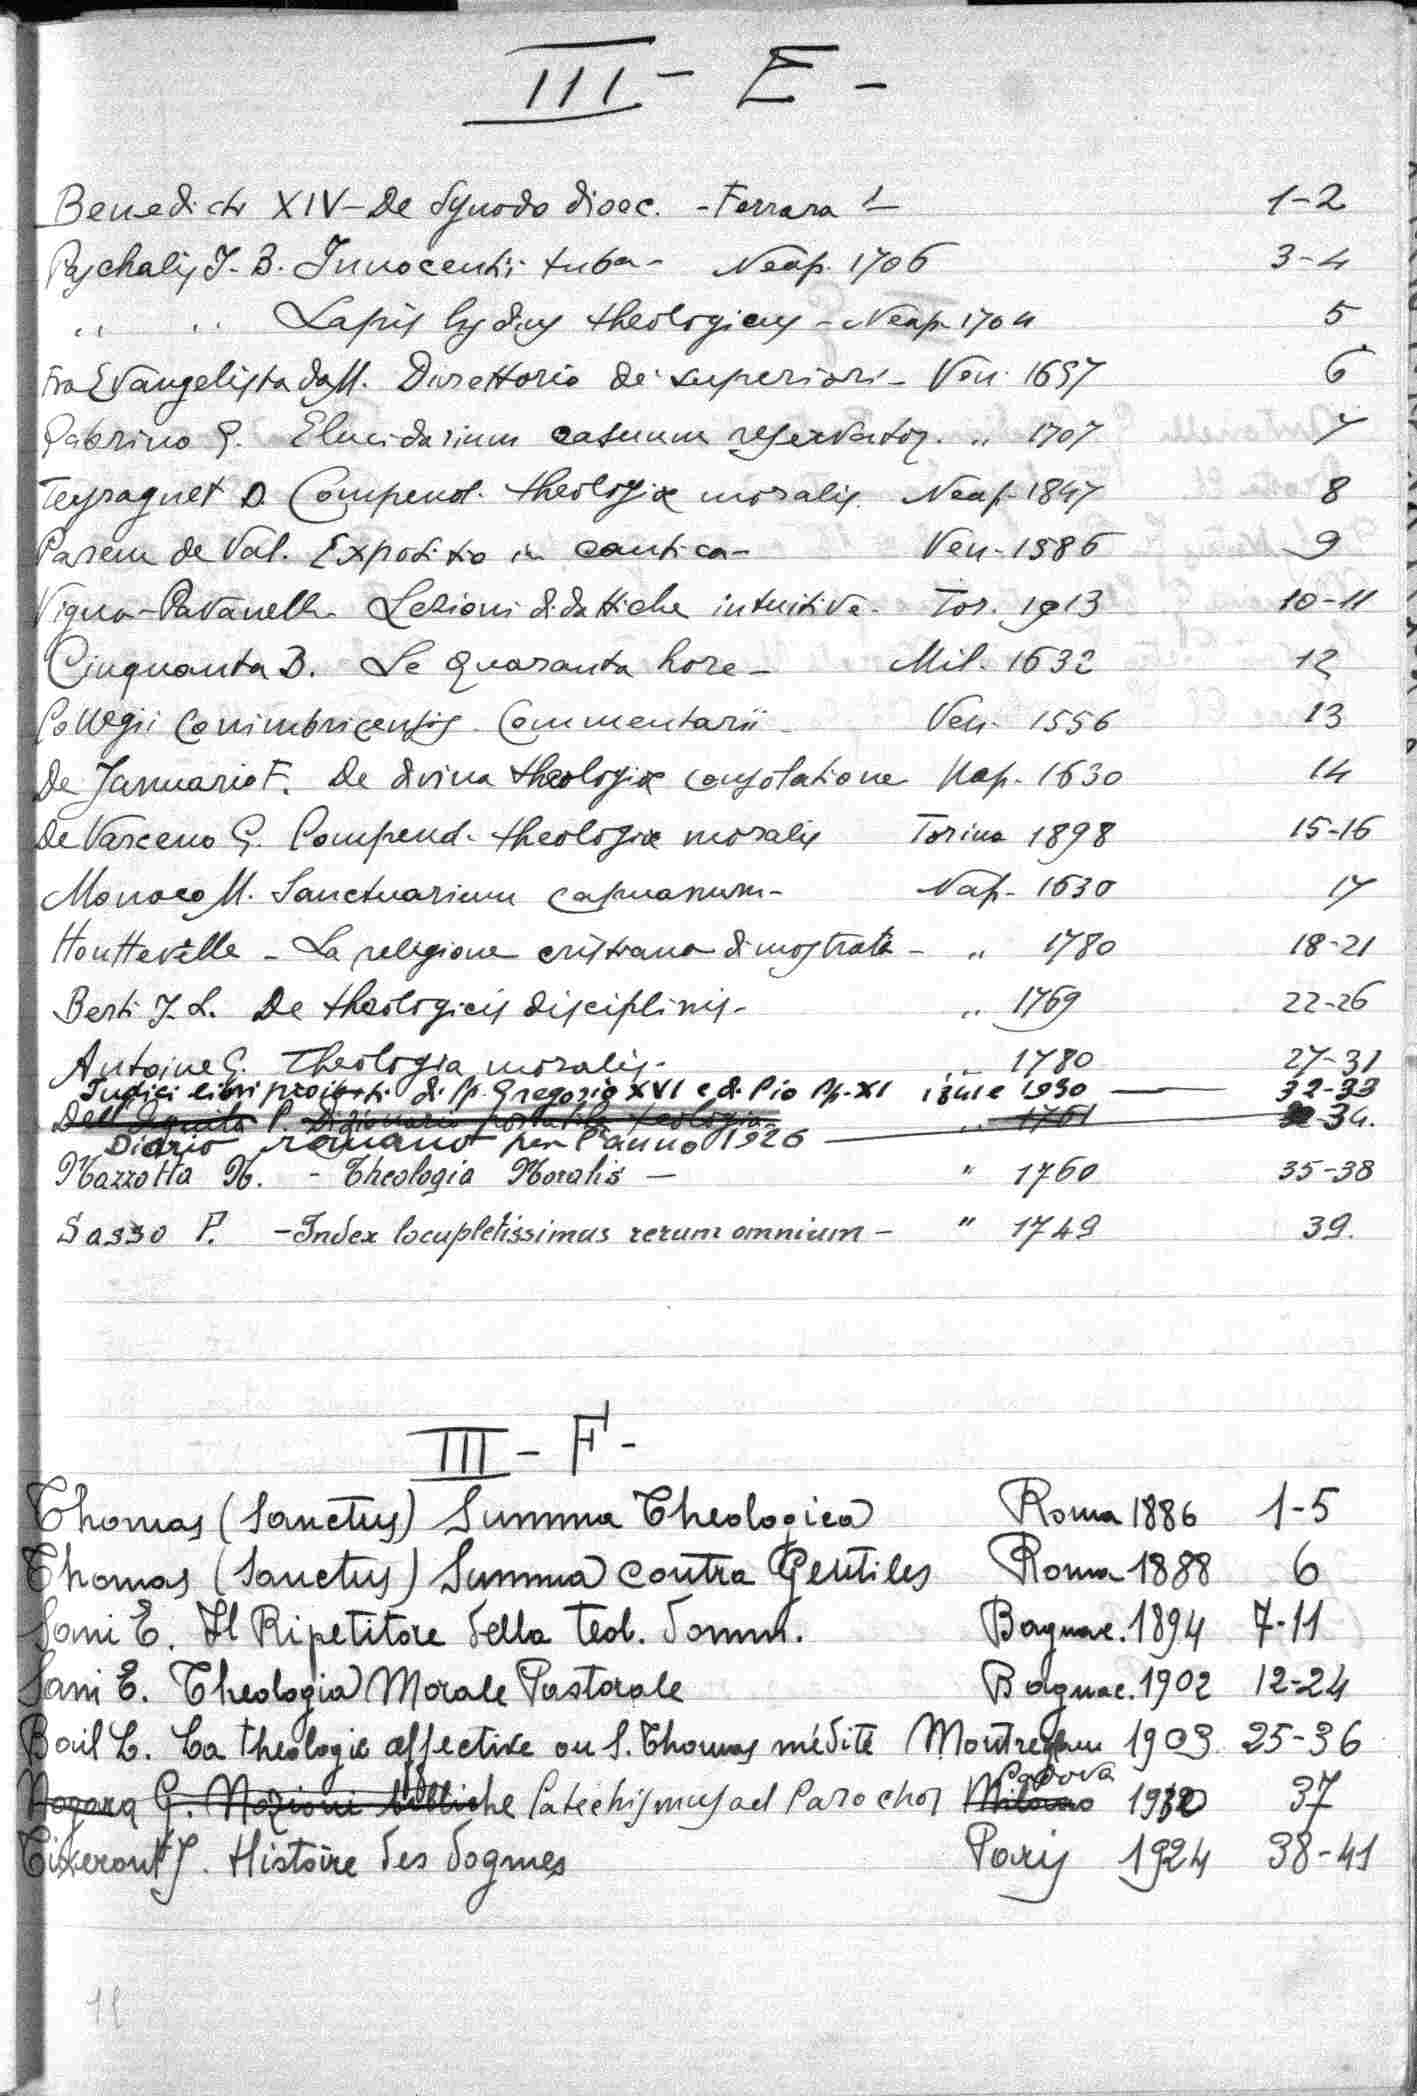 III - E -
Benedictr XIV - De Synodo dioec. - Ferrara 1-2
Paschalis J. B. Innocentii tuba - Neap. 1706 3-4
" " Lapis lydius theologicus - Neap. 1704 5
Fra Evangelista da M. Direttorio de' superiori - Ven. 1657 6
Gabrino G. Elucidarium casuum reservator. " 1707 7
Teyraguet D. Compend. theologiæ moralis. Neap. 1847 8
Parem de Val. Expositio in cantica - Ven. 1586 9
Vigna-Pavanelli Lezioni didattiche intuitive - Tor. 1913 10-11
Cinquanta B. Le quaranta hore - Mil. 1632 12
Collegii Conimbricensis Commentarii - Ven. 1556 13
De Januario F. De divina theologiæ consolatione Nap. 1630 14
De Varceno G. Compend. theologiæ moralis Torino 1898 15-16
Monaco M. Sanctuarium capuanum - Nap. 1630 17
Houtteville - La religione cristiana dimostrata - " 1780 18-21
Berti J. L. De theologicis disciplinis - " 1769 22-26
Antoine G. Theologia moralis - " 1780 27-31
Indici libri proibiti di Pp. Gregorio XVI e di Pio Pp. XI 1841 e 1930 — 32-33
P. Dizionario portatile teologia " 1761 34.
Diario romano per l'anno 1926
Mazzotta N. - Theologia Moralis — " 1760 35-38
Sasso P. - Index locupletissimus rerum omnium - " 1749 39.
III - F -
Thomas (Sanctus) Summa Theologica Roma 1886 1-5
Thomas (Sanctus) Summa contra Gentiles Roma 1888 6
Sani E. Il Ripetitore della teol. domm. Bagnac. 1894 7-11
Sani E. Theologia Morale Pastorale Bagnac. 1902 12-24
Bail L. La theologie affective ou S. Thomas médité 1903 25-36
Padova
Nogara G. Nozioni bibliche Catechismus ad Parochos Milano 1930 37
Tixeront J. Histoire des dogmes Paris 1924 38-41